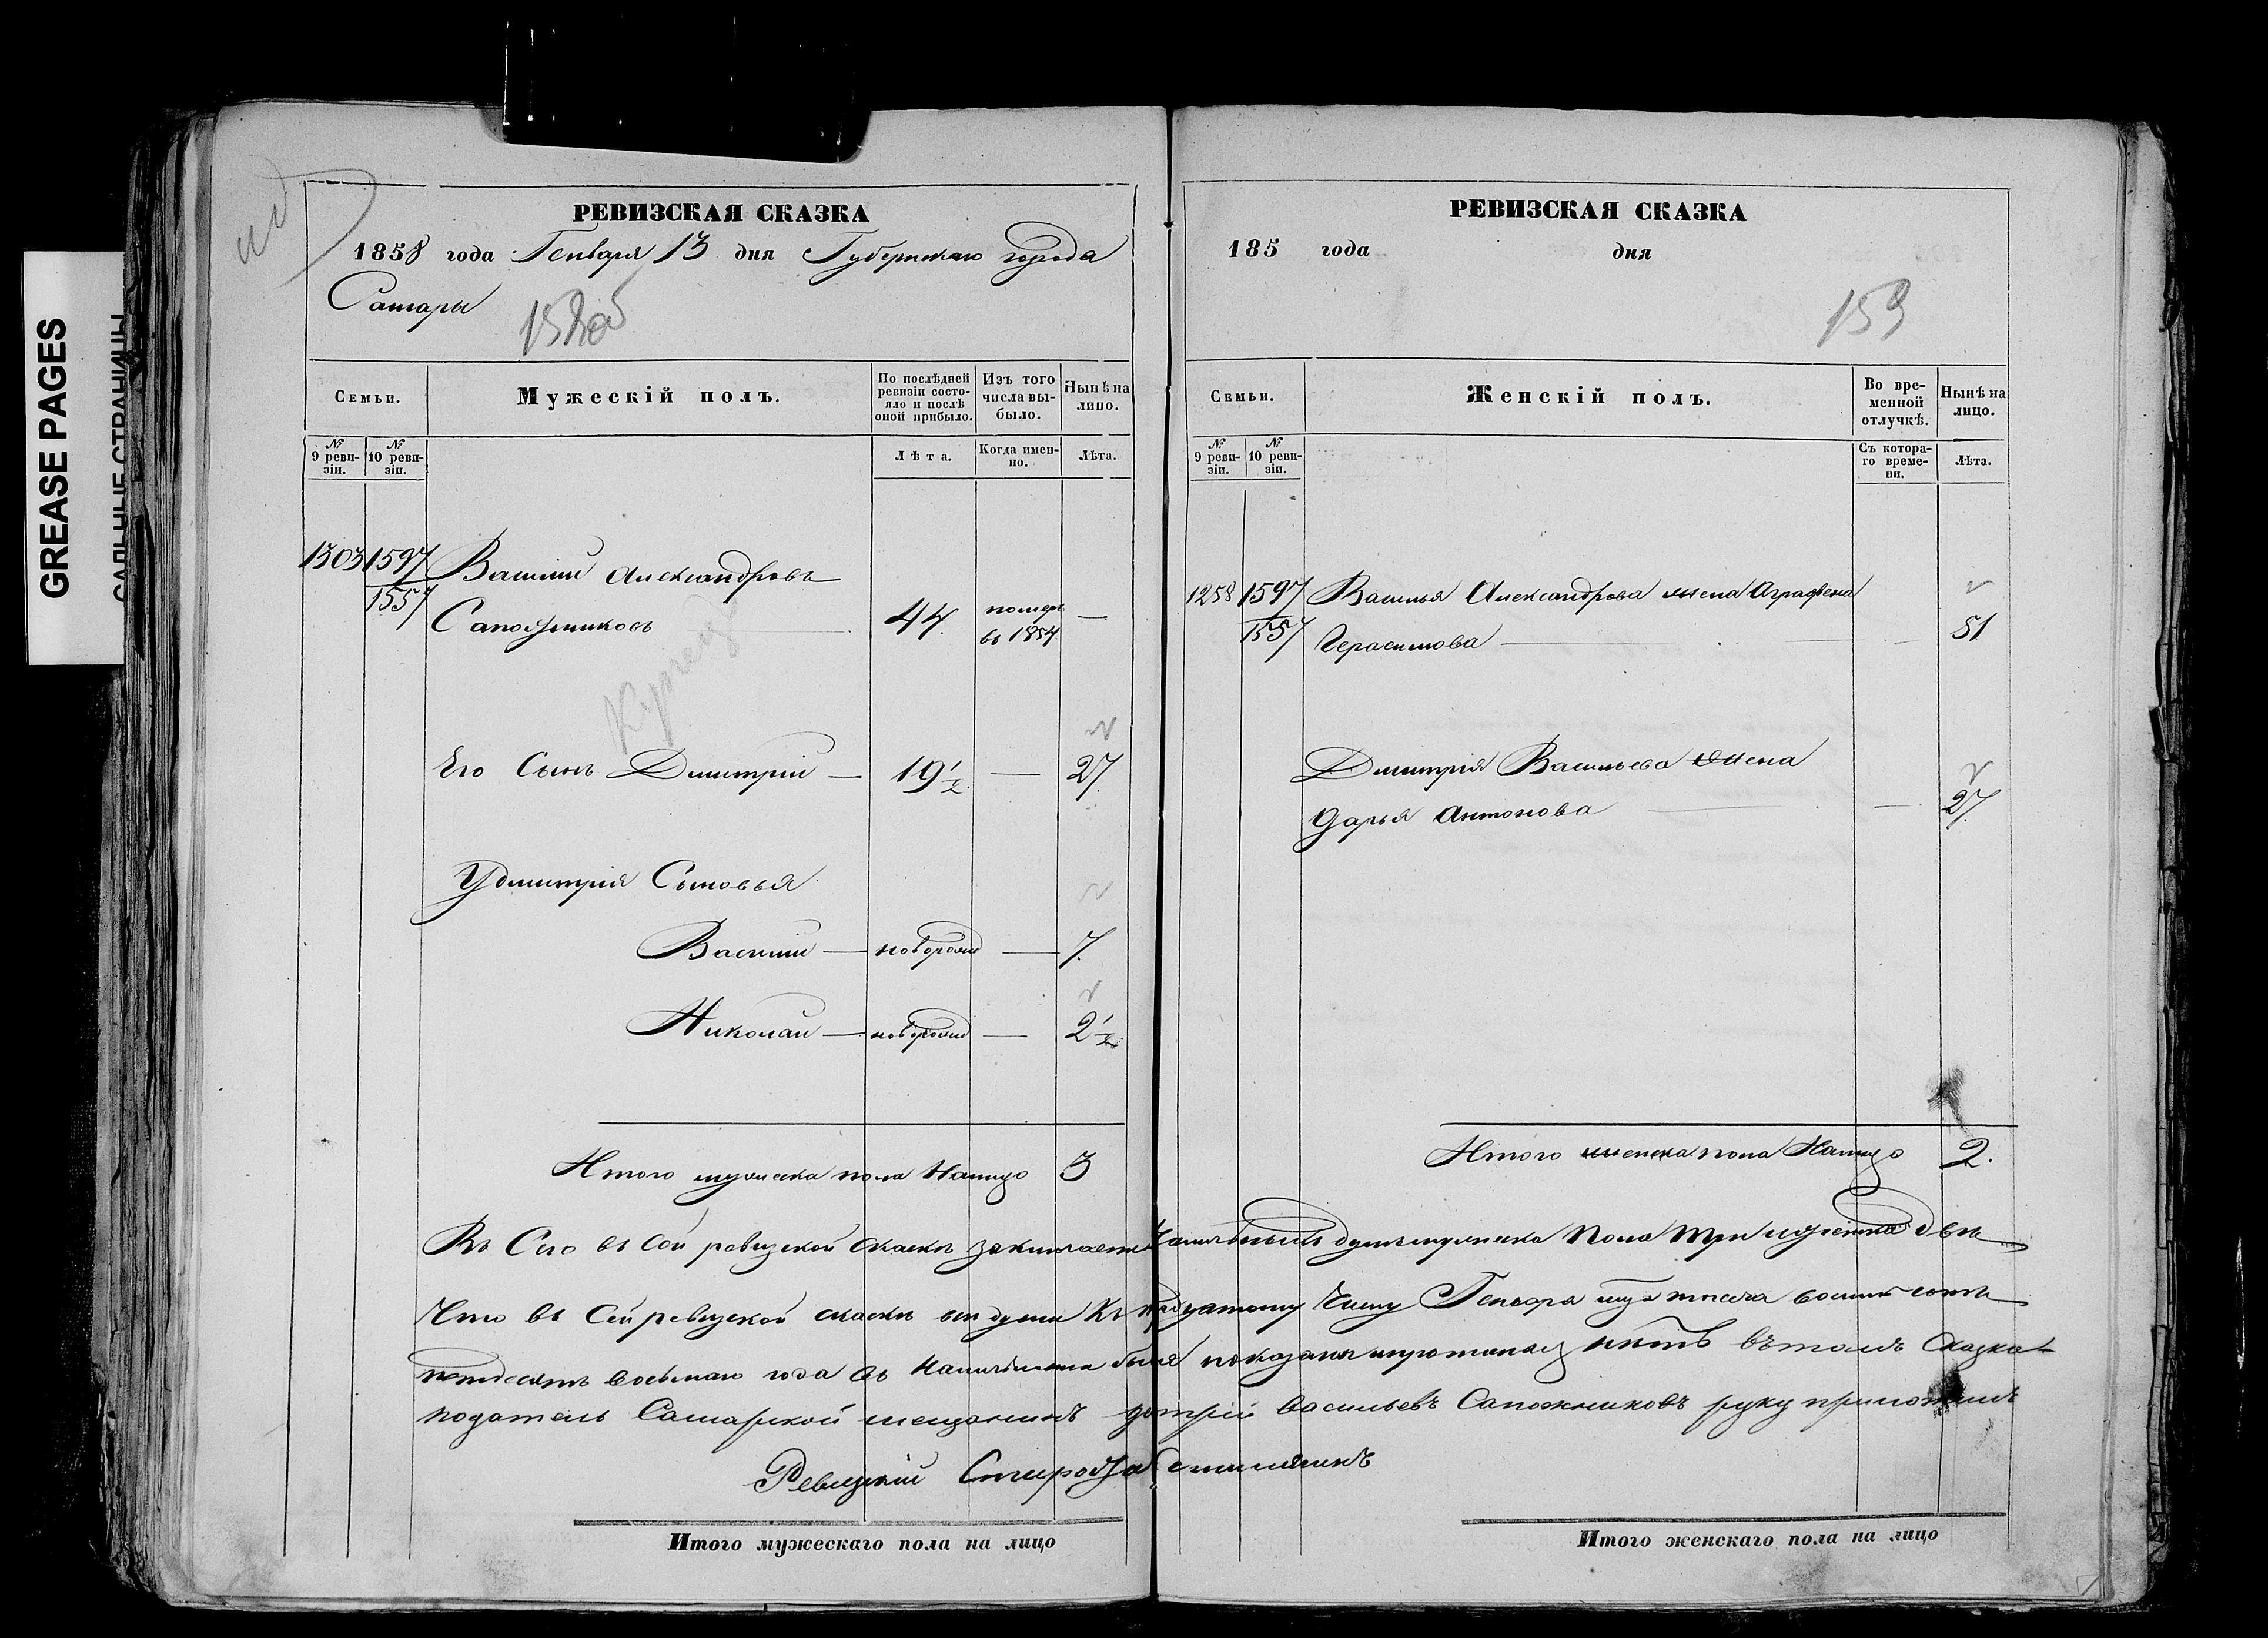 GREASE PAGES
САЛЬНЫЕ СТРАНИЦЫ
РЕВИЗСКАЯ СКАЗКА
1858 года Генваря 13 дня Губернскаго города
Самары
158об
Семьи.
Мужескій полъ.
По послѣдней ревизіи состояло и послѣ оной прибыло.
Изъ того числа выбыло.
Нынѣ на лицо.
№ 9 ревизіи.
№ 10 ревизіи.
Лѣта.
Когда именно.
Лѣта.
1303 1597 Василій Александровъ
1557 Сапожниковъ 44. померъ въ 1854. —
Его Сынъ Дмитрій — 19 1/2 — 27.
У Дмитрія Сыновья
Василій — новорожд — 7.
Николай — новорожд — 2 1/2
Итого мужеска пола Налицо 3
РЕВИЗСКАЯ СКАЗКА
185 года дня
159
Семьи.
Женскій полъ.
Во временной отлучкѣ.
Нынѣ на лицо.
№ 9 ревизіи.
№ 10 ревизіи.
Съ котораго времени.
Лѣта.
1258 1597 Василья Александрова жена Аграфена
1557 Герасимова — 51
Дмитрія Васильева жена
Дарья Антонова — 27.
Итого женска пола Налицо 2.
въ сей ревизской сказкѣ заключается душъ мужеска Пола три женска двѣ
Что въ Сей ревизской сказкѣ всѣ души Къ Генваря тысяча восемь сотъ
пятдесятъ восьмаго года показаны и пропущенныхъ нѣтъ въ томъ Сказко-
податель Самарской мещанинъ Дмтрій Васильевъ Сапожниковъ руку приложилъ
Ревизскій
Итого мужескаго пола на лицо
Итого женскаго пола на лицо